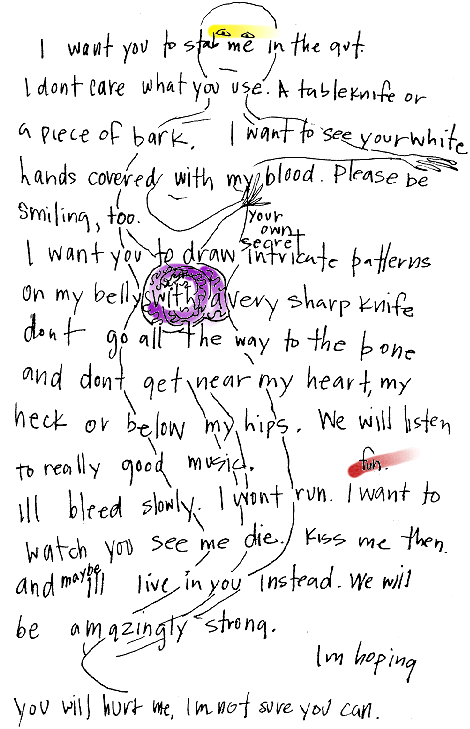 I want you to stab me in the gut.
I dont care what you use. A tableknife or
a piece of bark. I want to see your white
hands covered with my blood. Please be
smiling, too.
your
own
secret
I want you to draw intricate patterns
on my belly with a very sharp knife
dont go all the way to the bone
and dont get near my heart, my
neck or below my hips. We will listen
to really good music. fun.
ill bleed slowly. I wont run. I want to
watch you see me die. Kiss me then.
and maybe ill live in you instead. We will
be amazingly strong.
Im hoping
you will hurt me, Im not sure you can.